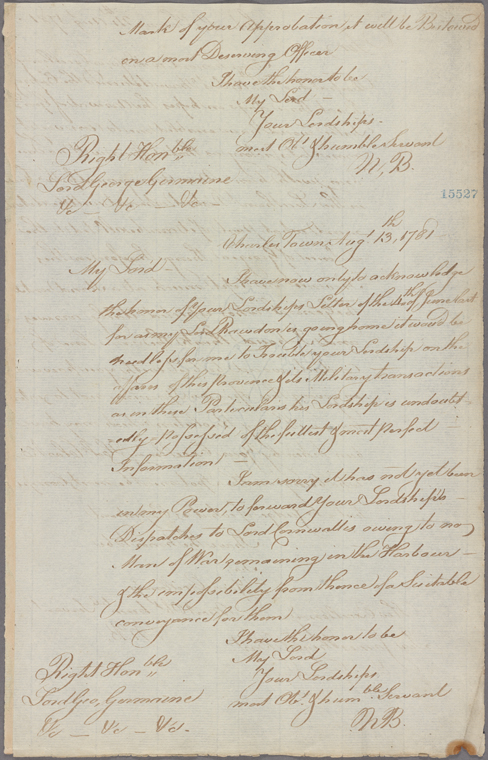 Mark of your Approbation it will be Bestowed
on a most Deserving Officer
I have the honor to be
My Lord —
Your Lordships -
most Obt. & humble Servant
N, B.
Right Honble
Lord George Germaine
&c — &c — &c —
15527
Charles Town Augt 13th, 1781
My Lord
I have now only to acknowledge
the honor of Your Lordships Letter of the of June last
for as my Lord Rawdon is going home it would be
needless for me to Trouble your Lordship on the
affairs of this Province & its Military transactions
as in these Particulars his Lordship is undoubt-
edly Possessed of the fullest & most Perfect —
Information —
I am sorry it has not yet been
in my Power to forward Your Lordship's —
Dispatches to Lord Cornwallis owing to no
Man of War remaining in the Harbour —
& the impossibility from thence of a Suitable
conveyance for them
I have the honor to be
My Lord
Your Lordships
most Obt. & humble Servant
N B.
Right Honble
Lord Geo, Germaine
&c — &c — &c -